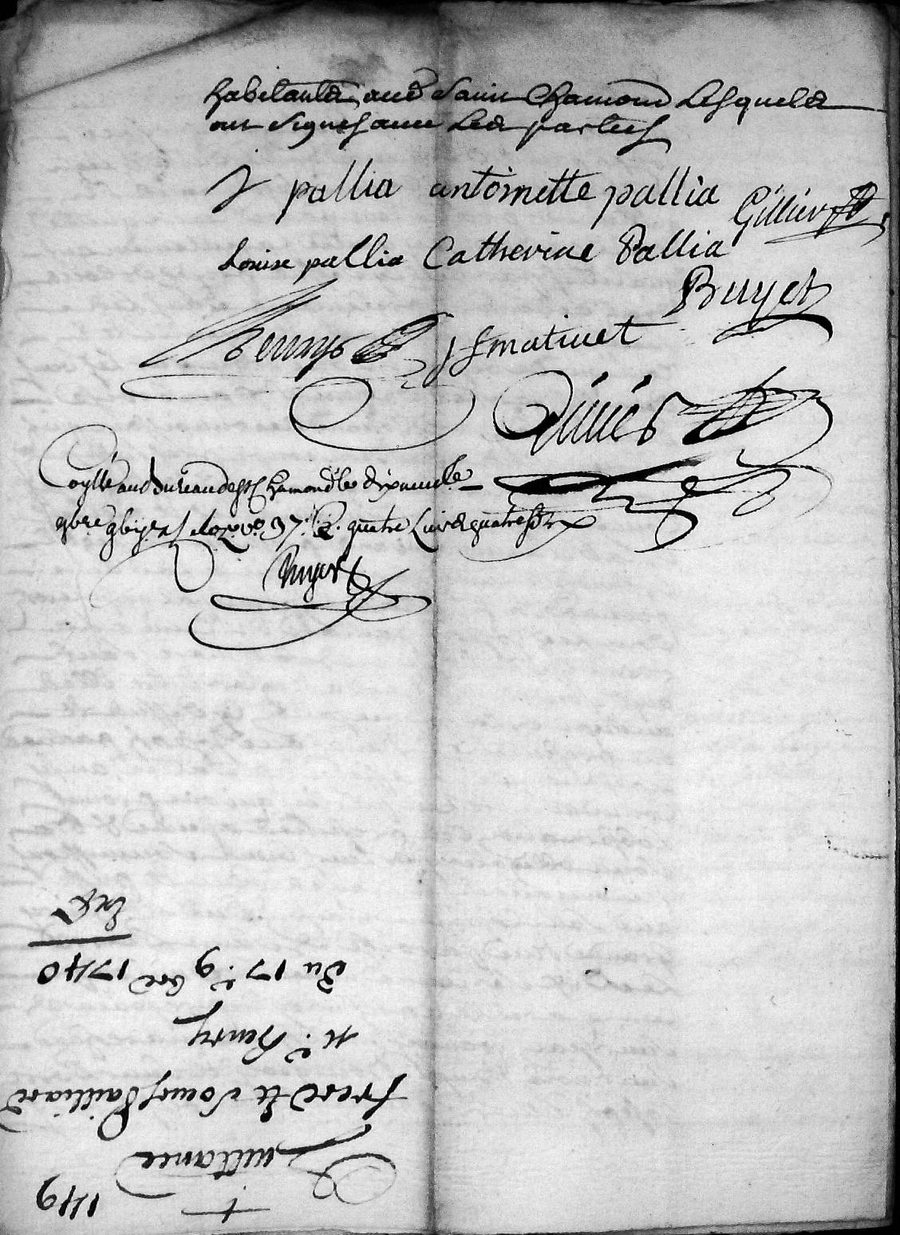 habitants aud Saint Chamond Lesquels
ont signes avec Les parties
J pallia antoinette pallia Gillier
Louise pallia Catherine Pallia
Buyet
henrys JS matinet
au bureau de St Chamond le dixneufe
9bre quatre Livres quatre
Buyet
1149
+
Quittance
freres et soeurs Palliard
Mr. henry
Du 17e. 9bre 1740